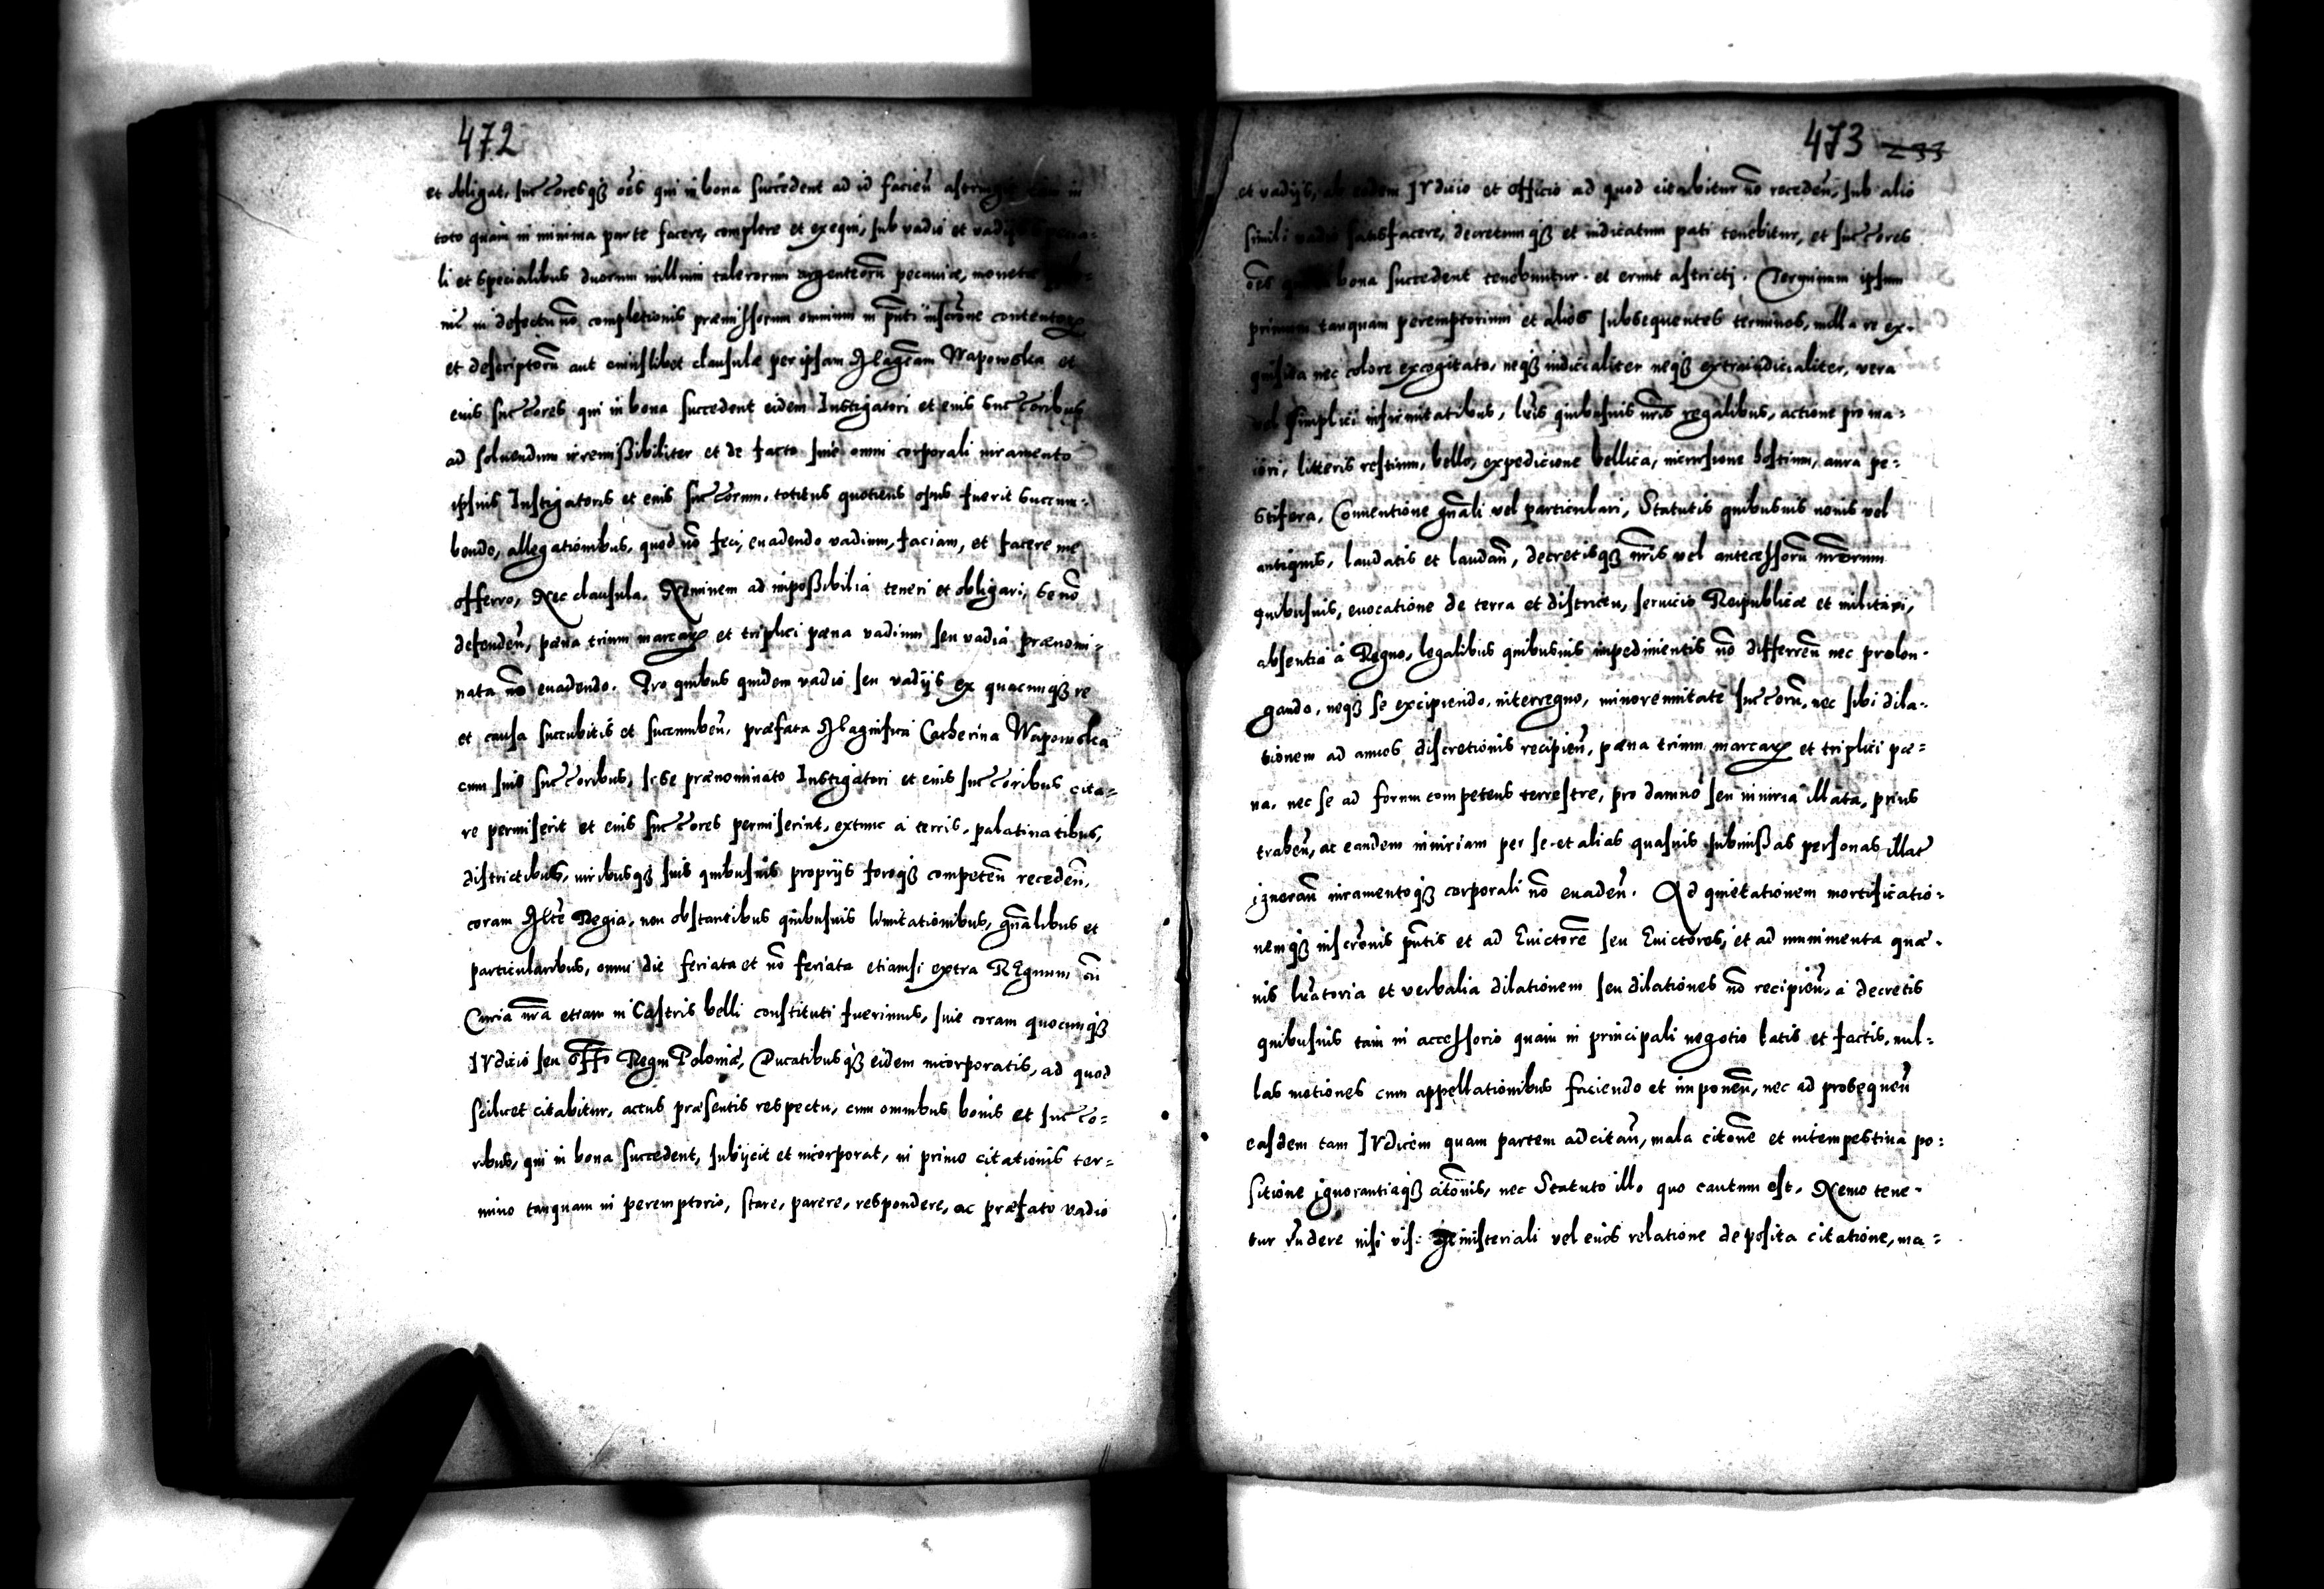 472
et obligat, succ̃oresq; oẽs qui in bona succedent ad id facieñ astringit in
toto quam in minima parte facere, complere et exequi, sub vadio et vadijs
li et specialibus duorum millium talerorum argenteorũ pecuniæ, monetæ
nis in defectu nõ completionis præmissorum omnium in pñti inscrõne contentorum
et descriptorũ aut cuiuslibet clausulæ per ipsam Magcam Wapowska et
eius succ̃ores qui in bona succedent eidem Instigatori et eius succ̃oribus
ad soluendum irremißibiliter et de facto sine omni corporali iuramento
ipsius Instigatoris et eius succ̃orum, totitus quotiens opus fuerit succum-
bendo, allegationibus, quod nõ feci, euadendo vadium, faciam, et facere me
offerro, Nec clausula, Neminem ad impoßibilia teneri et obligari, se nõ
defendeñ, pæna trium marcarum et triplici pæna vadium seu vadia prænomi-
nata nõ euadendo. Pro quibus quidem vadio seu vadijs ex quacumq; re
et causa succubitis et sucumbeñ, præfata Magnifica Catherina Wapowska
cum suis succ̃oribus, si se prænominato Instigatori et eius succ̃oribus cita-
re permiserit et eius succ̃ores permiserint, extunc a terris, palatinatibus,
districtibus, iuribusq; suis quibusuis proprijs foroq; competeñ recedeñ,
coram Mte Regia, non obstantibus quibusuis limitationibus, gñalibus et
particularibus, omni die feriata et nõ feriata etiamsi extra REgnum cũ
Curia nrã etiam in Castris belli constituti fuerimus, siue coram quocumq;
IVdicio seu offo Regni Poloniæ, Ducatibusq; eidem incorporatis, ad quod
scilicet citabitur, actus præsentis respectu, cum omnibus bonis et succ̃o-
ribus, qui in bona succedent, subijcit et incorporat, in primo citationis ter-
mino tanquam in peremptorio, stare, parere, respondere, ac præfato vadio
473 233
et vadijs, ab eodem IVdicio et officio ad quod citabitur nõ recedeñ, sub alio
simili vadio satisfacere, decretumq; et indicatum pati tenebitur, et succ̃ores
oẽs bona succedent tenebuntur et erunt astricti. Terminum ipsum
primum tanquam peremptorium et alios subsequentes terminos, nulla re ex-
quisita nec colore excogitato, neq; iudicialiter neq; extraiudicialiter, vera
vel simplici infirmitatibus, lrĩs quibusuis nrĩs regalibus, actione pro ma-
iori, litteris restium, bello, expedicione bellica, incursione hostium, aura pe-
stifera, Conuentione gñali vel particulari, Statutis quibusuis nouis vel
antiquis, laudatis et laudañ, decretisq; nrĩs vel antecessorũ nrõrum
quibusuis, euocatione de terra et districtu, seruicio Reipublicæ et militari,
absentia á Regno, legalibus quibusuis impedimentis nõ differreñ nec prolon-
gando, neq; se excipiendo, interregno, minorennitate succ̃orũ, nec sibi dila-
tionem ad annos discretionis recipieñ, pæna trium marcarum et triplici pæ-
na, nec se ad forum competens terrestre, pro damno seu iniuria illata, prius
traheñ, ac eandem iniuriam per se et alias quasuis submißas personas illat
ignorañ iuramentoq; corporali nõ euadeñ. Ad quietationem mortificatio-
nemq; inscrõnis pñtis et ad Euictorẽ seu Euictores, et ad munimenta quæ-
uis lrãtoria et verbalia dilationem seu dilationes nõ recipieñ, á decretis
quibusuis tam in accessorio quam in principali negotio latis et factis, nul-
las motiones cum appellationibus faciendo et imponeñ, nec ad prosequeñ
easdem tam IVdicem quam partem adcitañ, mala citõne et intempestiua po-
sitione ignorantiaq; citõnis, nec Statuto illo quo cautum est, Nemo tene-
tur rñdere nisi vis: Ministeriali vel eius relatione deposita citatione, ma-